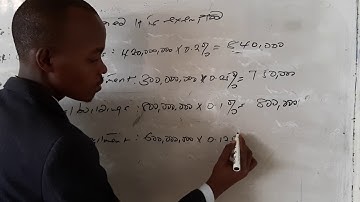 It is exempted
: 420,000,000 × 0.2% = 840,000
: 300,000,000 × 0.25% = 750,000
buildings : 800,000,000 × 0.1% = 800,000
: 600,000,000 × 0.12